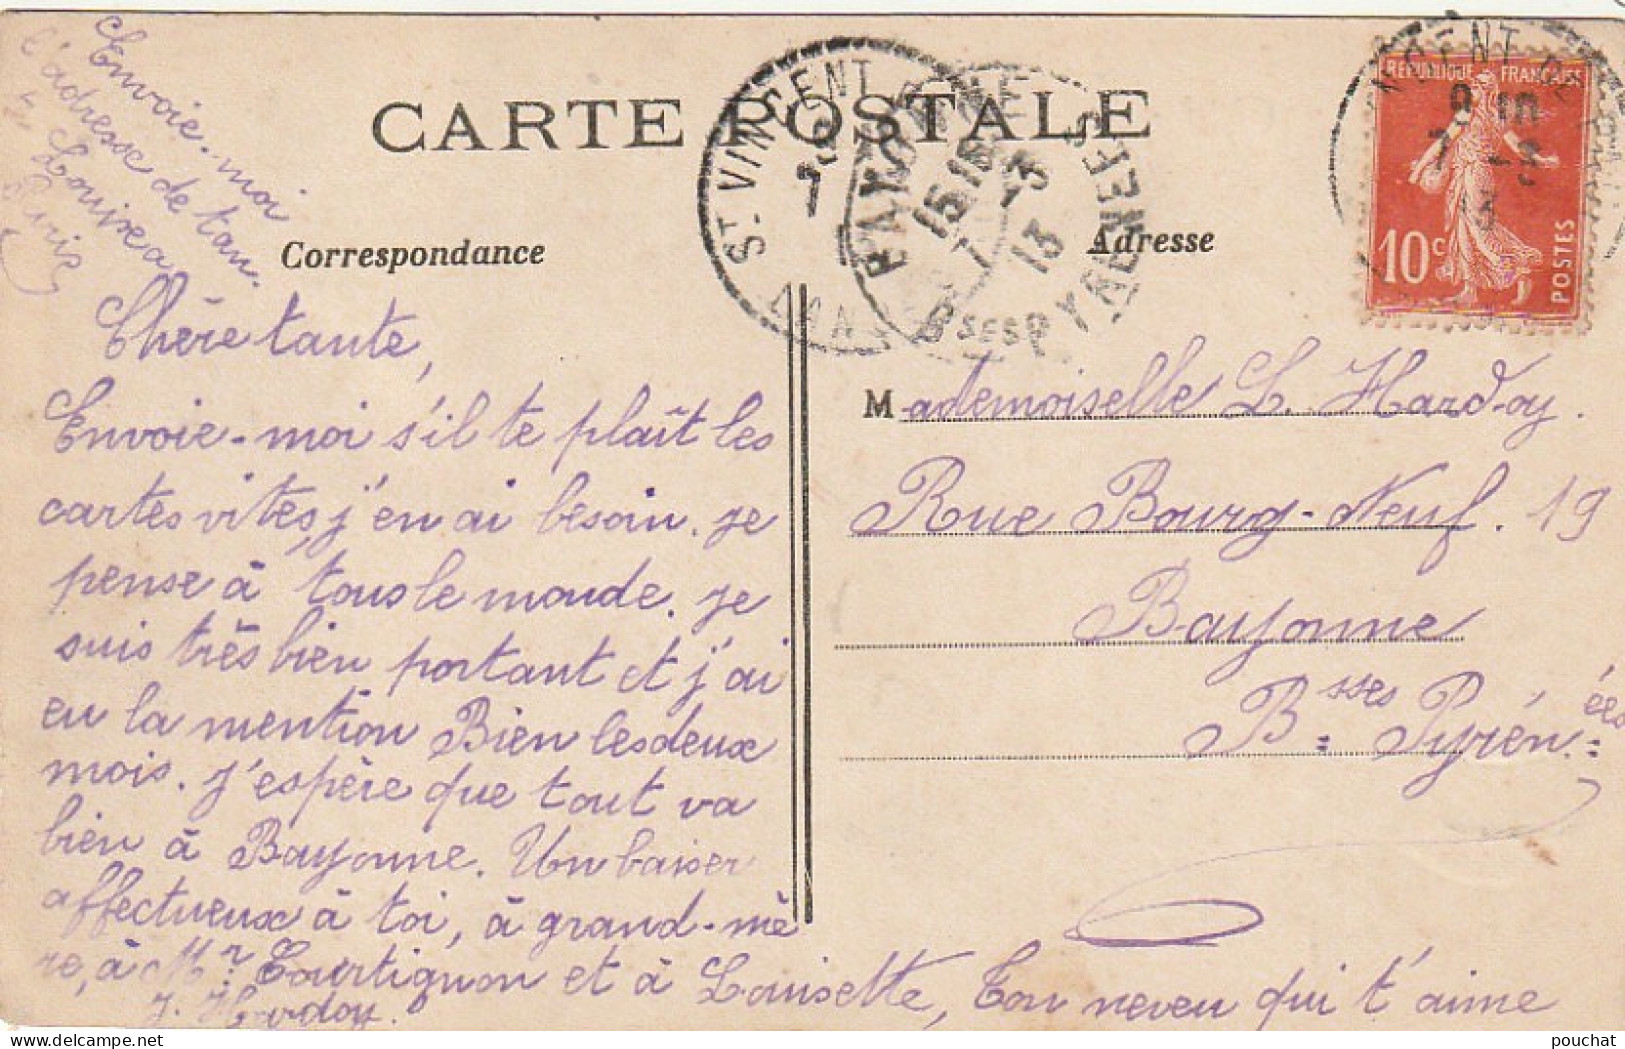 Envoie-moi
l'adresse de tan-
te Louise à
Paris
CARTE POSTALE
Correspondance
Adresse
ST-VINCENT
7
BAYONNE
15 15
7 -3
13
BSES PYRENEES
RÉPUBLIQUE FRANÇAISE
10c
POSTES
Chère tante,
Envoie-moi s'il te plaît les
cartes vites, j'en ai besoin. Je
pense à tous le monde. Je
suis très bien portant et j'ai
eu la mention Bien les deux
mois. J'espère que tout va
bien à Bayonne. Un baiser
affectueux à toi, à grand-mè
re, à Mr. Courtignon et à Louisette, Ton neveu qui t'aime
J. Hardoy.
Mademoiselle L. Hardoy.
Rue Bourg-Neuf. 19
Bayonne
Bsses Pyrénées
pouchat